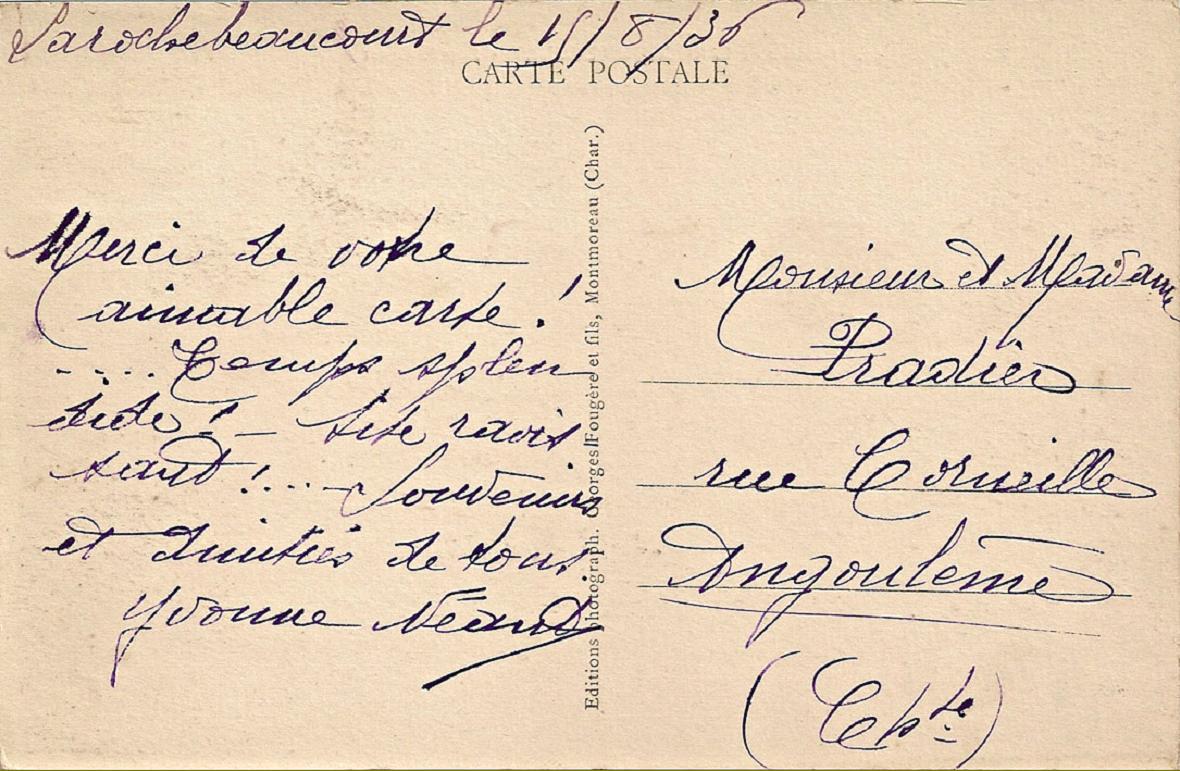 Larochebeaucourt le 15/8/36
CARTE POSTALE
Merci de votre
aimable carte !
.... Temps splen
dide ! – Site ravis
sant !... – Souvenirs
et amitiés de tous
Yvonne Néaud
Editions photograph. Georges Fougère et fils, Montmoreau (Char.)
Monsieur et Madame
Pradier
rue Corneille
Angoulême
(Chte)